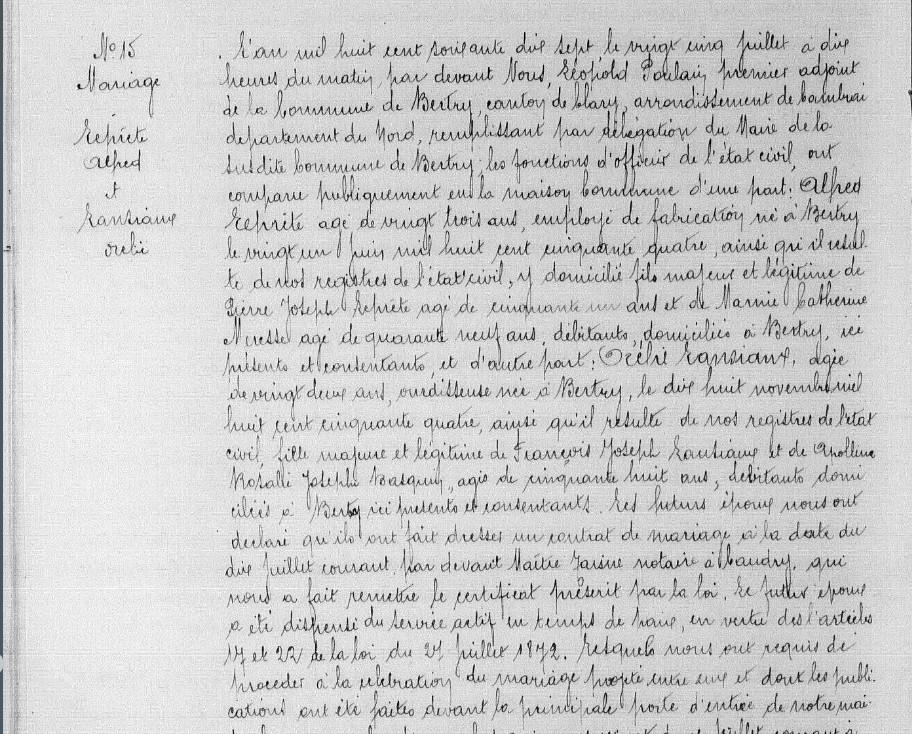 N° 15
Mariage
Leprêtre
Alfred
et
Lansiaux
Orélie
L'an mil huit cent soixante dix sept, le vingt cinq juillet à dix
heures du matin, par devant Nous, Léopold Poulain, premier adjoint
de la Commune de Bertry, canton de Clary, arrondissement de Cambrai
département du Nord, remplissant par délégation du Maire de la
susdite Commune de Bertry, les fonctions d'officier de l'état civil, ont
comparu publiquement en la maison Commune d'une part: Alfred
agé de vingt trois ans, employé de fabrication né à Bertry
le vingt un juin mil huit cent cinquante quatre, ainsi qu'il résul-
te de nos registres de l'état civil, y domicilié fils majeur et légitime de
Pierre Joseph agé de cinquante un ans et de Marie Catherine
agé de quarante neuf ans, débitants, domiciliés à Bertry, ici
présents et consentants, et d'autre part: Lansiaux, agée
de vingt deux ans, ourdisseuse née à Bertry, le dix huit novembre mil
huit cent cinquante quatre, ainsi qu'il résulte de nos registres de l'état
civil, fille majeure et légitime de François Joseph Lansiaux et de Apolline
Rosalie Josephe Basquin, agés de cinquante huit ans, débitants domi
ciliés à Bertry ici présents et consentants. Les futurs époux nous ont
déclaré qu'ils ont fait dresser un contrat de mariage à la date du
dix juillet courant, par devant Maître notaire à Caudry, qui
nous a fait remettre le certificat préscrit par la loi. Le futur époux
a été dispensé du service actif en temps de paix, en vertu des l'articles
17 et 22 de la loi du 27 juillet 1872. Lesquels nous ont requis de
procéder à la célébration du mariage projeté entre eux et dont les publi-
cations ont été faites devant la principale porte d'entrée de notre mai-